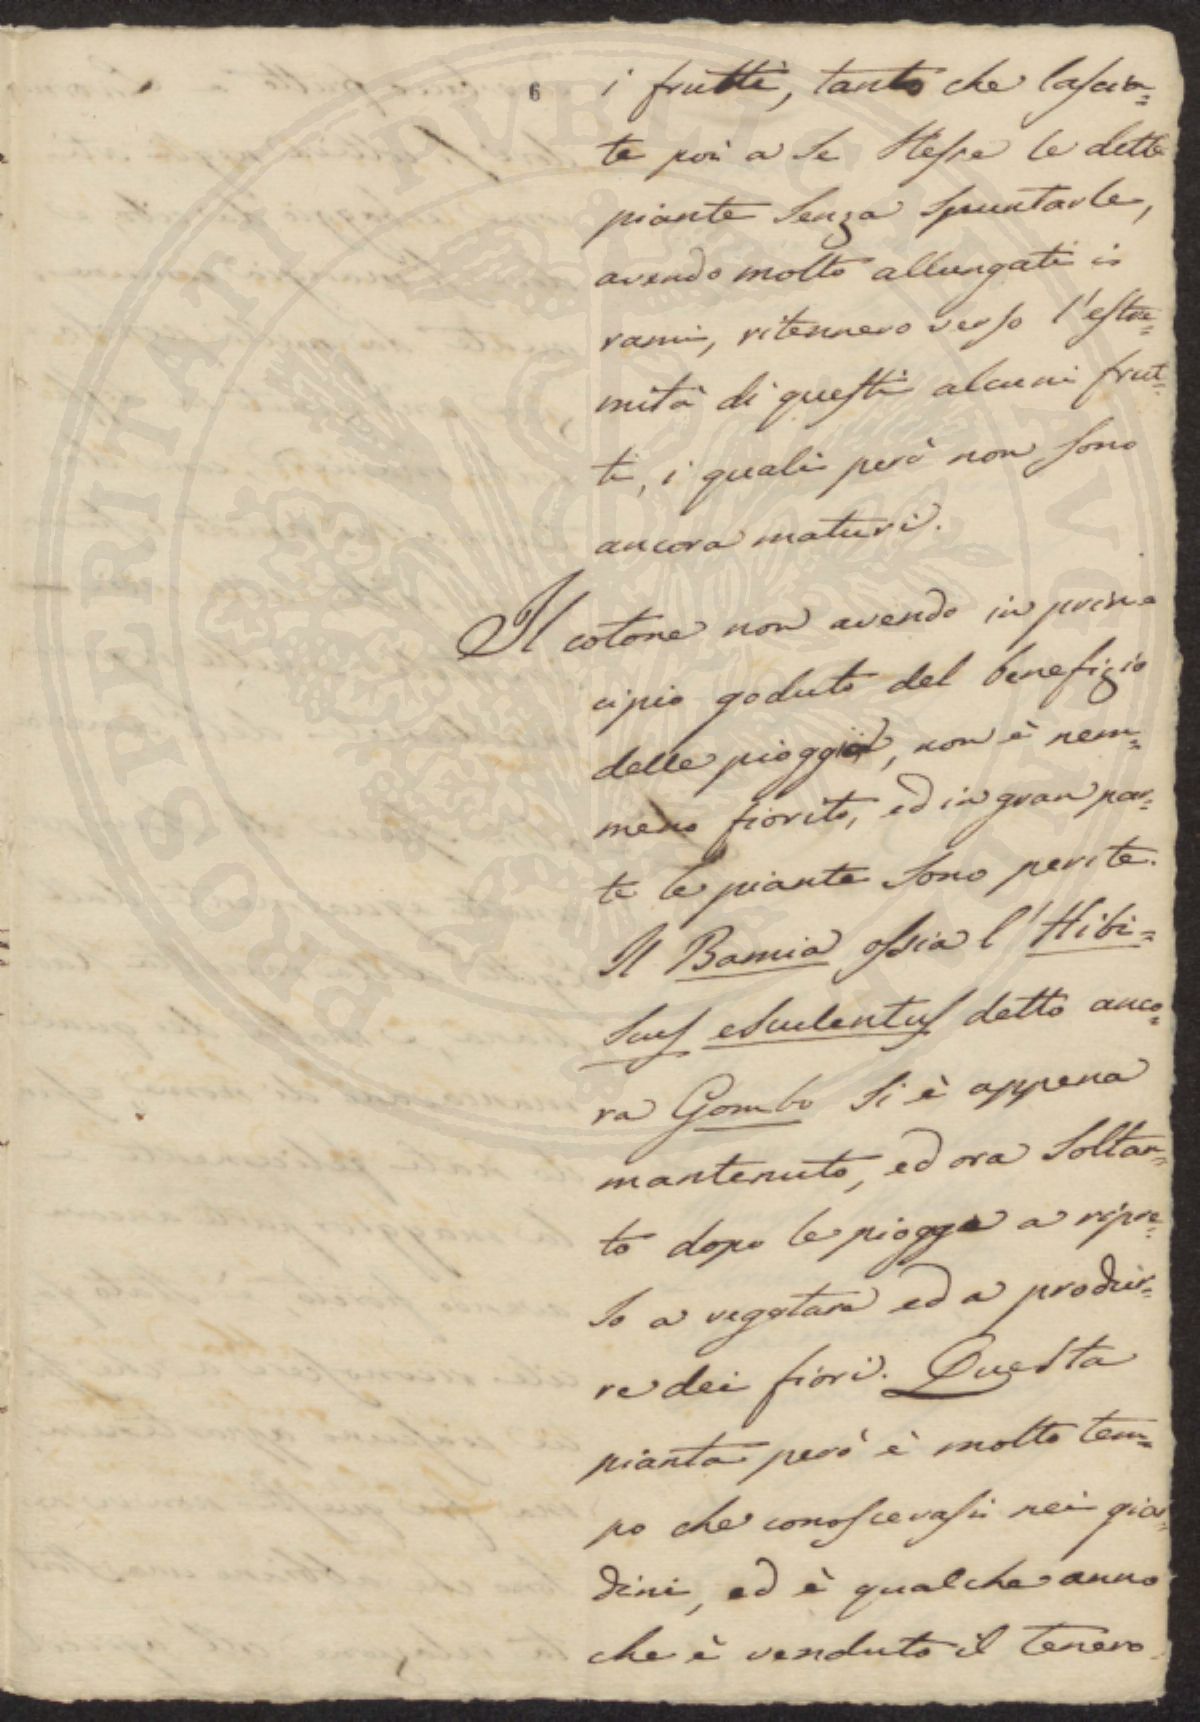 6
i frutti, tanto che lascia=
te poi a se stesse le dette
piante senza spuntarle,
avendo molto allungati i
rami, ritennero verso l'estre=
mità di questi alcuni frut=
ti, i quali però non sono
ancora maturi.
Il cotone non avendo in prin=
cipio goduto del benefizio
delle pioggie, non è nem=
meno fiorito, ed in gran par=
te le piante sono perite.
Il Bamia ossia l'Hibi=
scus esculentus detto anco=
ra Gombo si è appena
mantenuto, ed ora soltan=
to dopo le piogge a ripre=
so a vegetare ed a produr=
re dei fiori. Questa
pianta però è molto tem=
po che conoscevasi nei giar=
dini, ed è qualche anno
che è venduto il tenero
PROSPERITATI PUBLICAE AUGENDAE